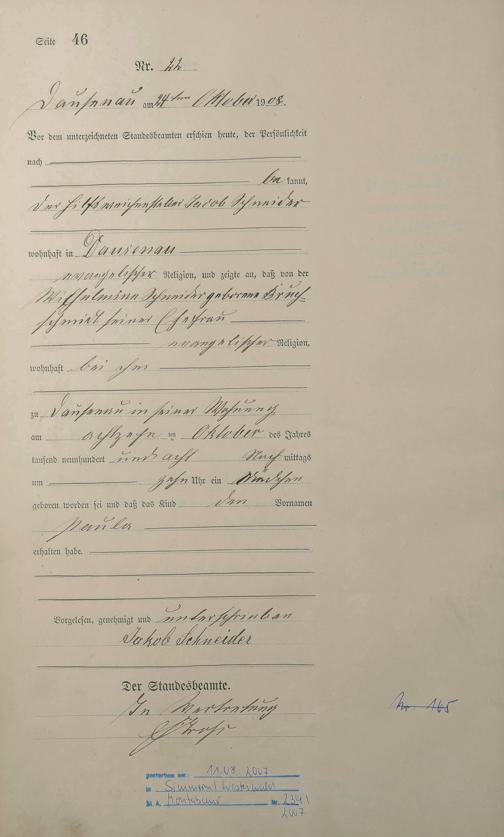 Seite 46
Nr. 22
Dausenau am 24ten Oktober 1908.
Vor dem unterzeichneten Standesbeamten erschien heute, der Persönlichkeit
nach
be kannt,
der Hilfsweichensteller Jacob Schneider
wohnhaft in Dausenau
evangelischer Religion, und zeigte an, daß von der
Wilhelmine Schneider geborene Kruch-
schmidt seiner Ehefrau
evangelischer Religion,
wohnhaft bei ihm
zu Dausenau in seiner Wohnung
am achtzehn ten Oktober des Jahres
tausend neunhundert und acht Nach mittags
um zehn Uhr ein Mädchen
geboren worden sei und daß das Kind den Vornamen
Paula
erhalten habe.
Vorgelesen, genehmigt und unterschrieben
Jakob Schneider
Der Standesbeamte.
In Vertretung
Nr. 165
gestorben am: 11.08.2007
in Simmern/Westerwald
St. A. Montabaur Nr. 234/
2007